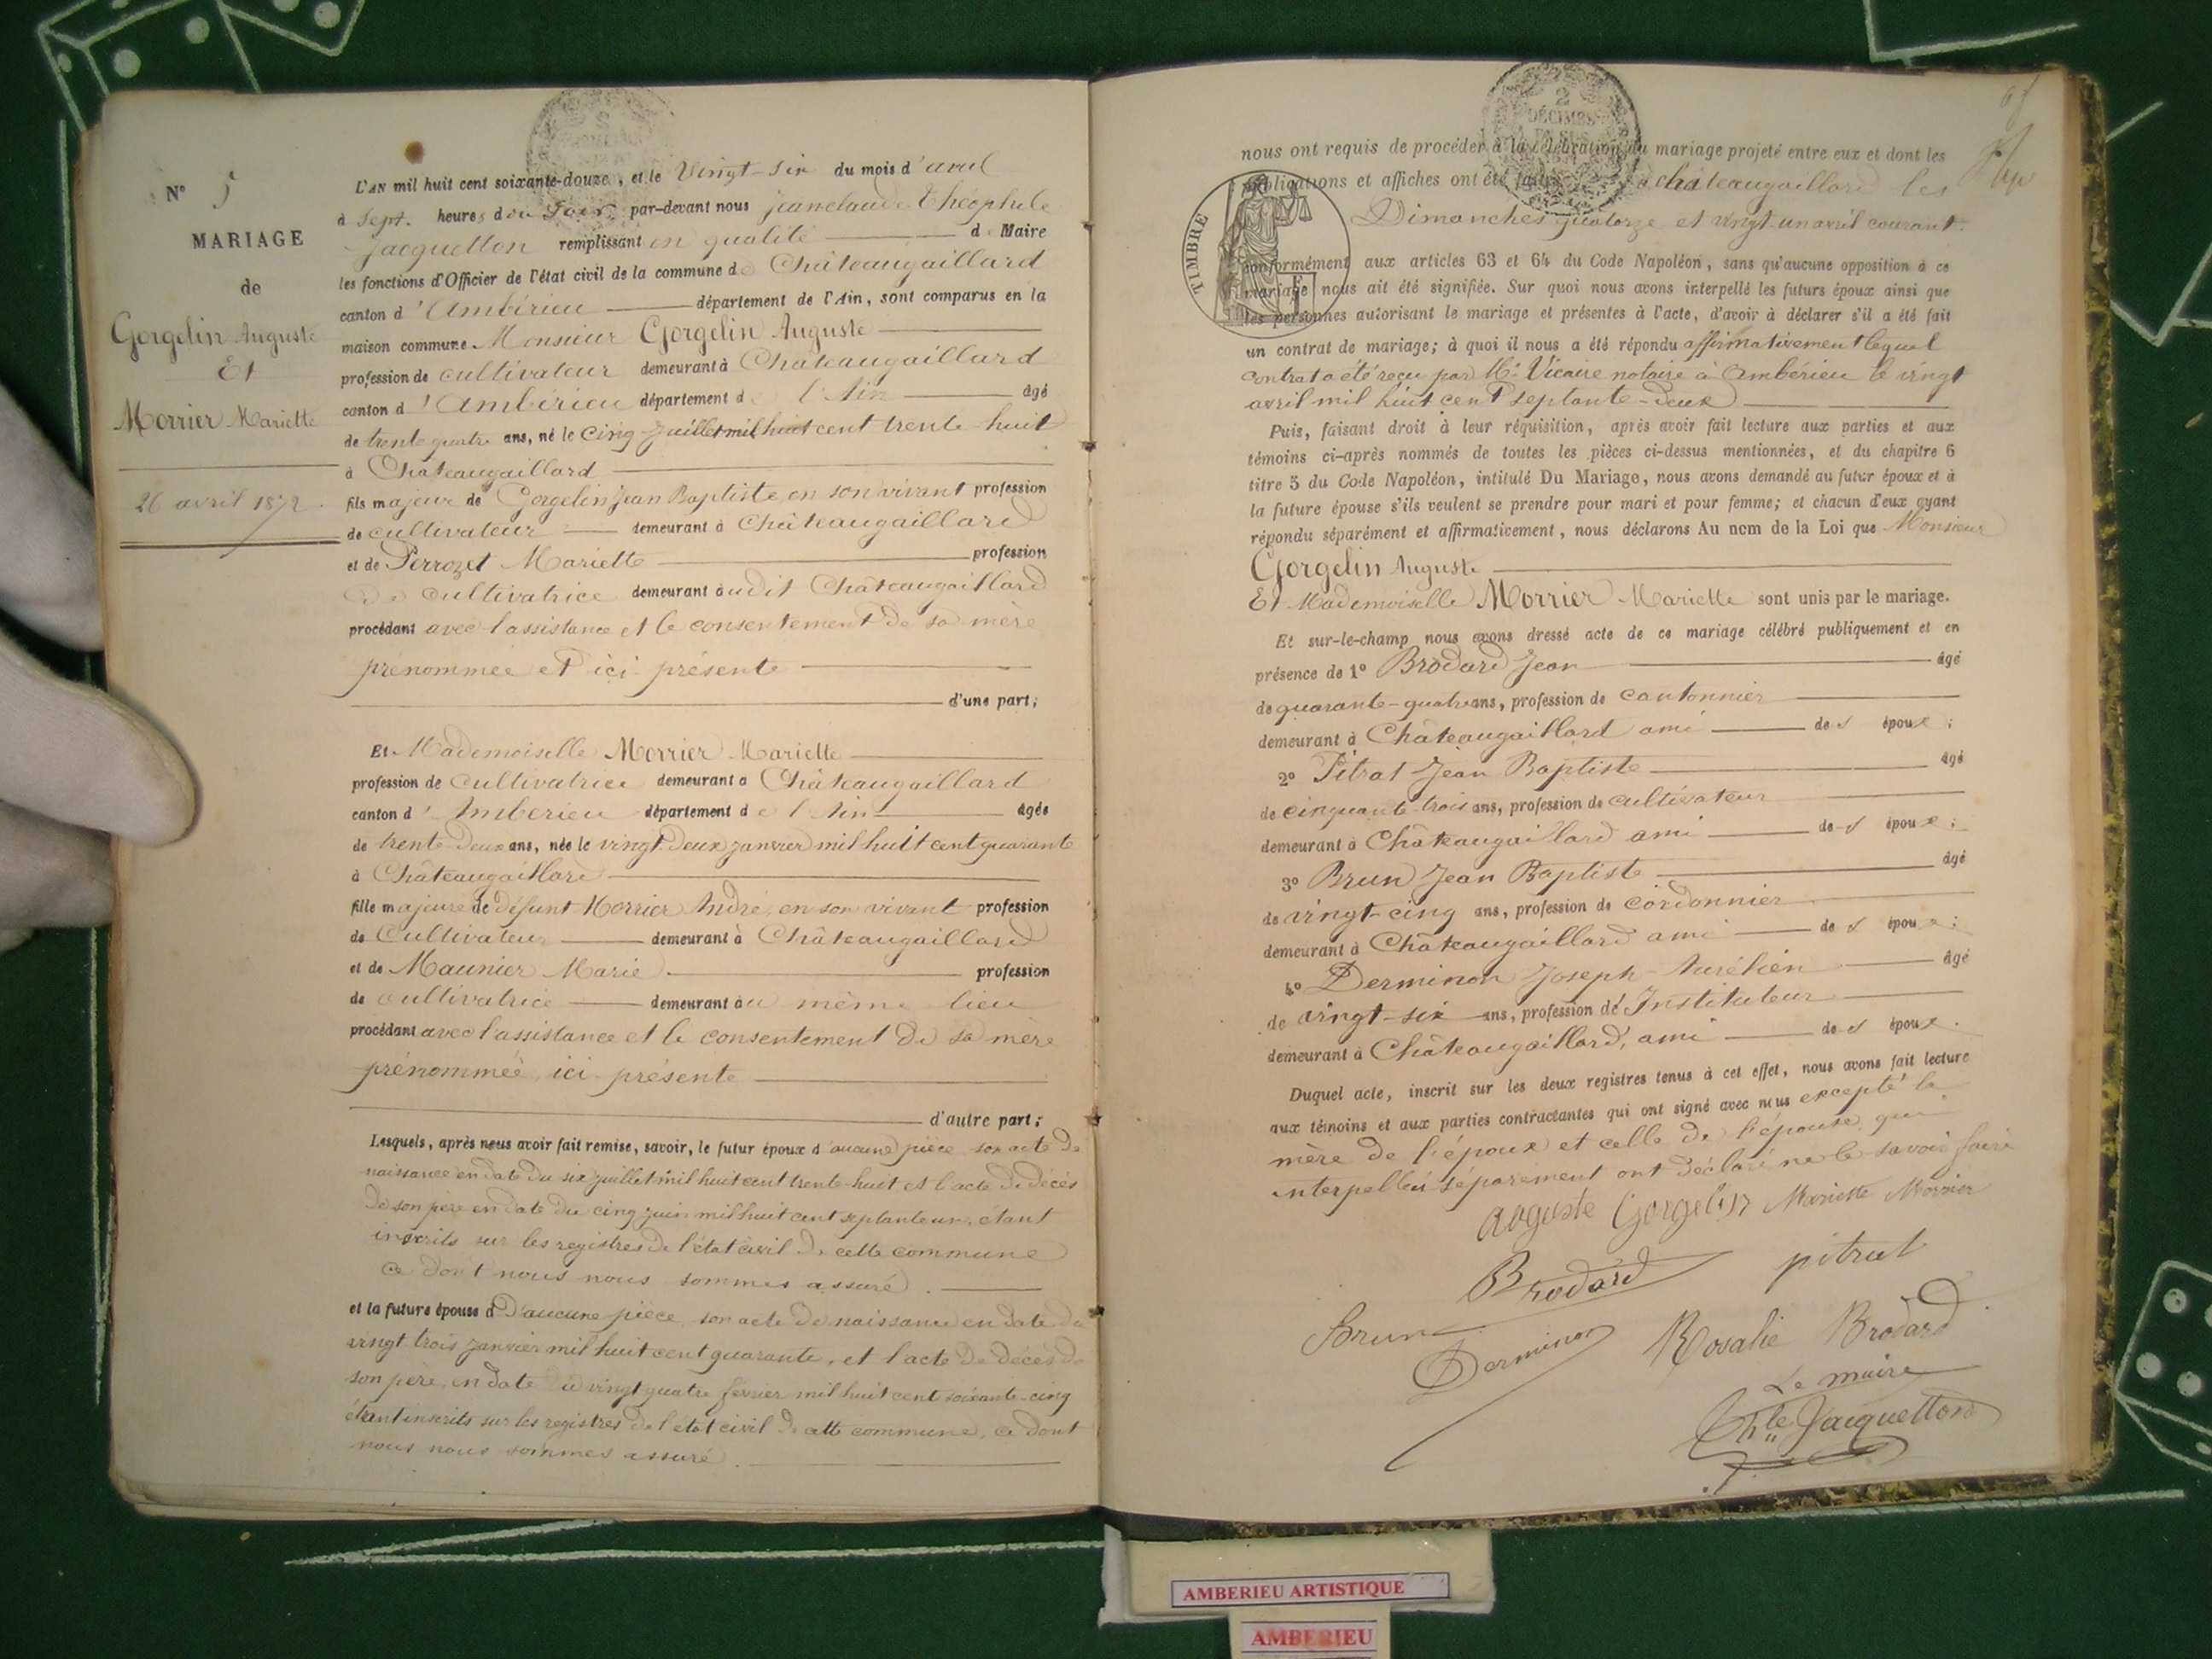 N° 5
MARIAGE
de
Gorgelin Auguste
Et
Morrier Mariette
26 avril 1872.
L'AN mil huit cent soixante-douze, et le Vingt-six du mois d'avril
à Sept heures du Soir, par-devant nous jean claude Théophile
Jacquetton remplissant en qualité de Maire
les fonctions d'Officier de l'état civil de la commune de Châteaugaillard
canton d'Ambérieu département de l'Ain, sont comparus en la
maison commune Monsieur Gorgelin Auguste
profession de cultivateur demeurant à Châteaugaillard
canton d'Ambérieu département de l'Ain âgé
de trente quatre ans, né le cinq juillet mil huit cent trente-huit
à Châteaugaillard
fils majeur de Gorgelin Jean Baptiste en son vivant profession
de cultivateur demeurant à Châteaugaillard
et de Perrozet Mariette profession
de cultivatrice demeurant audit Châteaugaillard
procédant avec l'assistance et le consentement de sa mère
prénommée et ici présente
d'une part;
Et Mademoiselle Morrier Mariette
profession de cultivatrice demeurant à Châteaugaillard
canton d'Amberieu département de l'Ain âgée
de trente-deux ans, née le vingt-deux janvier mil huit cent quarante
à Châteaugaillard
fille majeure de défunt Morrier André, en son vivant profession
de Cultivateur demeurant à Châteaugaillard
et de Maunier Marie profession
de cultivatrice demeurant au même lieu
procédant avec l'assistance et le consentement de sa mère
prénommée, ici présente
d'autre part;
Lesquels, après nous avoir fait remise, savoir, le futur époux d'aucune pièce son acte de
naissance en date du six juillet mil huit cent trente-huit et l'acte de décès
de son père en date du cinq juin mil huit cent septante un, étant
inscrits sur les registres de l'état civil de cette commune
ce dont nous nous sommes assuré.
et la future épouse d D'aucune pièce, son acte de naissance en date du
vingt trois janvier mil huit cent quarante, et l'acte de décès de
son père, en date du vingt quatre février mil huit cent soixante-cinq
étant inscrits sur les registres de l'état civil de cette commune, ce dont
nous nous sommes assuré.
2
DÉCIMES
TIMBRE
nous ont requis de procéder à la célébration du mariage projeté entre eux et dont les
publications et affiches ont été faites à châteaugaillard les
Dimanches quatorze et vingt-un avril courant.
conformément aux articles 63 et 64 du Code Napoléon, sans qu'aucune opposition à ce
mariage nous ait été signifiée. Sur quoi nous avons interpellé les futurs époux ainsi que
les personnes autorisant le mariage et présentes à l'acte, d'avoir à déclarer s'il a été fait
un contrat de mariage; à quoi il nous a été répondu affirmativement lequel
contrat a été reçu par Me Vicaire notaire à Ambérieu le vingt
avril mil huit cent septante-deux
Puis, faisant droit à leur réquisition, après avoir fait lecture aux parties et aux
témoins ci-après nommés de toutes les pièces ci-dessus mentionnées, et du chapitre 6
titre 5 du Code Napoléon, intitulé Du Mariage, nous avons demandé au futur époux et à
la future épouse s'ils veulent se prendre pour mari et pour femme; et chacun d'eux ayant
répondu séparément et affirmativement, nous déclarons Au nom de la Loi que Monsieur
Gorgelin Auguste
Et Mademoiselle Morrier Mariette sont unis par le mariage.
Et sur-le-champ nous avons dressé acte de ce mariage célébré publiquement et en
présence de 1° Brodard Jean âgé
de quarante-quatre ans, profession de cantonnier
demeurant à Châteaugaillard ami des époux;
2° Pitrat Jean Baptiste âgé
de cinquante-trois ans, profession de cultivateur
demeurant à Châteaugaillard ami des époux;
3° Brun Jean Baptiste âgé
de vingt-cinq ans, profession de cordonnier
demeurant à Châteaugaillard ami des époux;
4° Derminon Joseph-Aurélien âgé
de vingt-six ans, profession de Instituteur
demeurant à Châteaugaillard, ami des époux.
Duquel acte, inscrit sur les deux registres tenus à cet effet, nous avons fait lecture
aux témoins et aux parties contractantes qui ont signé avec nous excepté la
mère de l'époux et celle de l'épouse qui
interpellés séparément ont déclaré ne le savoir faire
Auguste Gorgelin Mariette Morrier
Brodard pitrat
Brun Derminon Rosalie Brodard
Le maire
Thle Jacquetton
AMBERIEU ARTISTIQUE
AMBERIEU